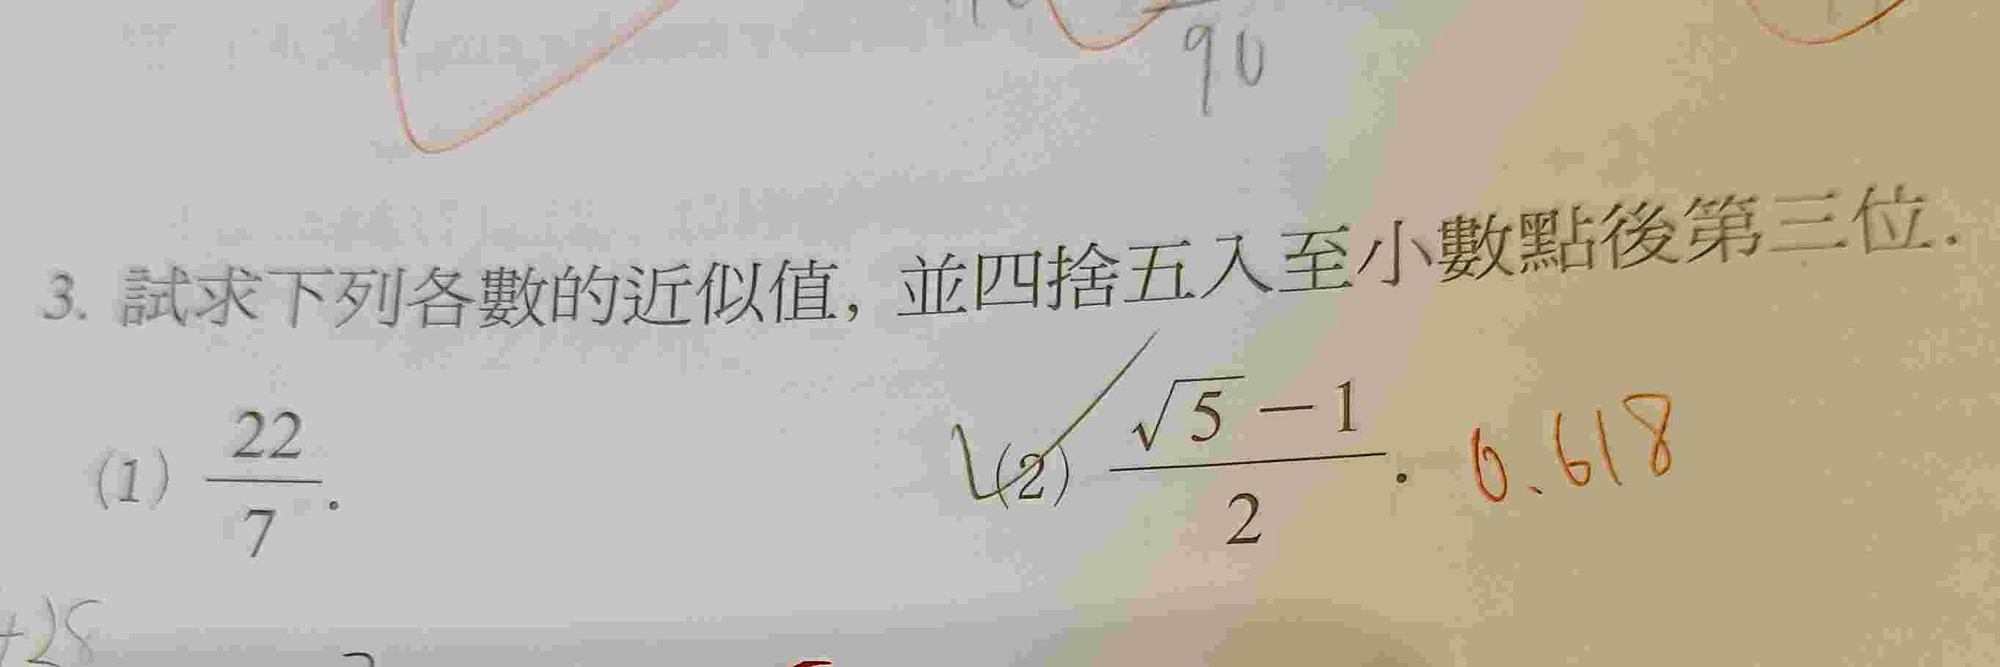 90
3. 試求下列各數的近似值, 並四捨五入至小數點後第三位.
(1) 22/7. (2) (√5 − 1)/2. 0.618
+28